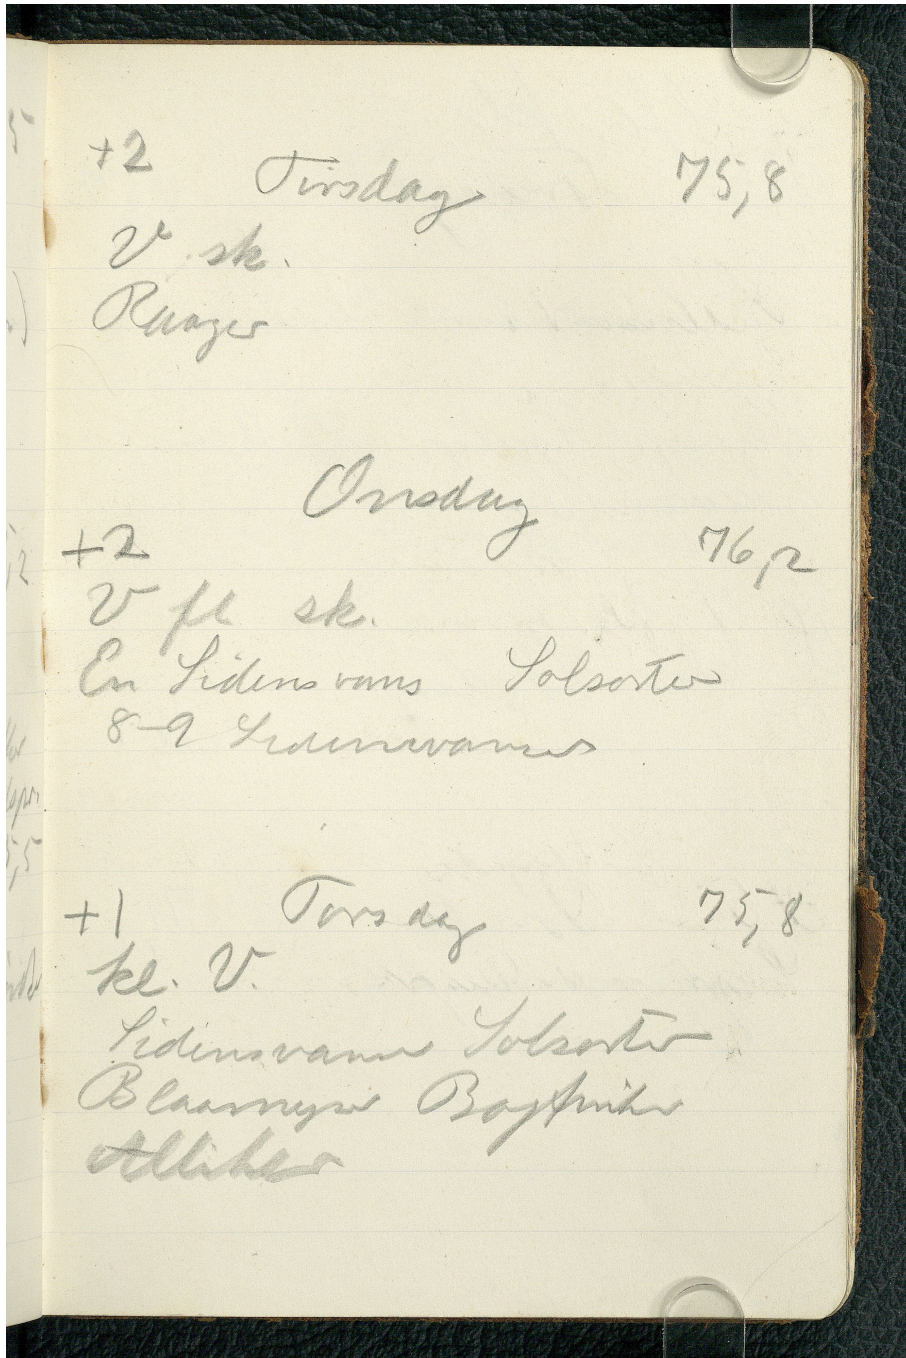 +2 Tirsdag 75,8
V sk.
Raager
Onsdag
+2 76,2
V fl sk.
En Sidensvans Solsorter
8-9 Sidensvanser
+1 Torsdag 75,8
kl. V.
Sidensvanse Solsorter
Blaamejser Bogfinker
Alliker